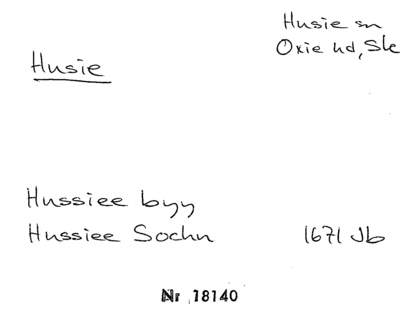 Husie sn
Oxie hd, Sk
Husie
Hussiee byy
Hussiee Sochn 1671 Jb
Nr 18140